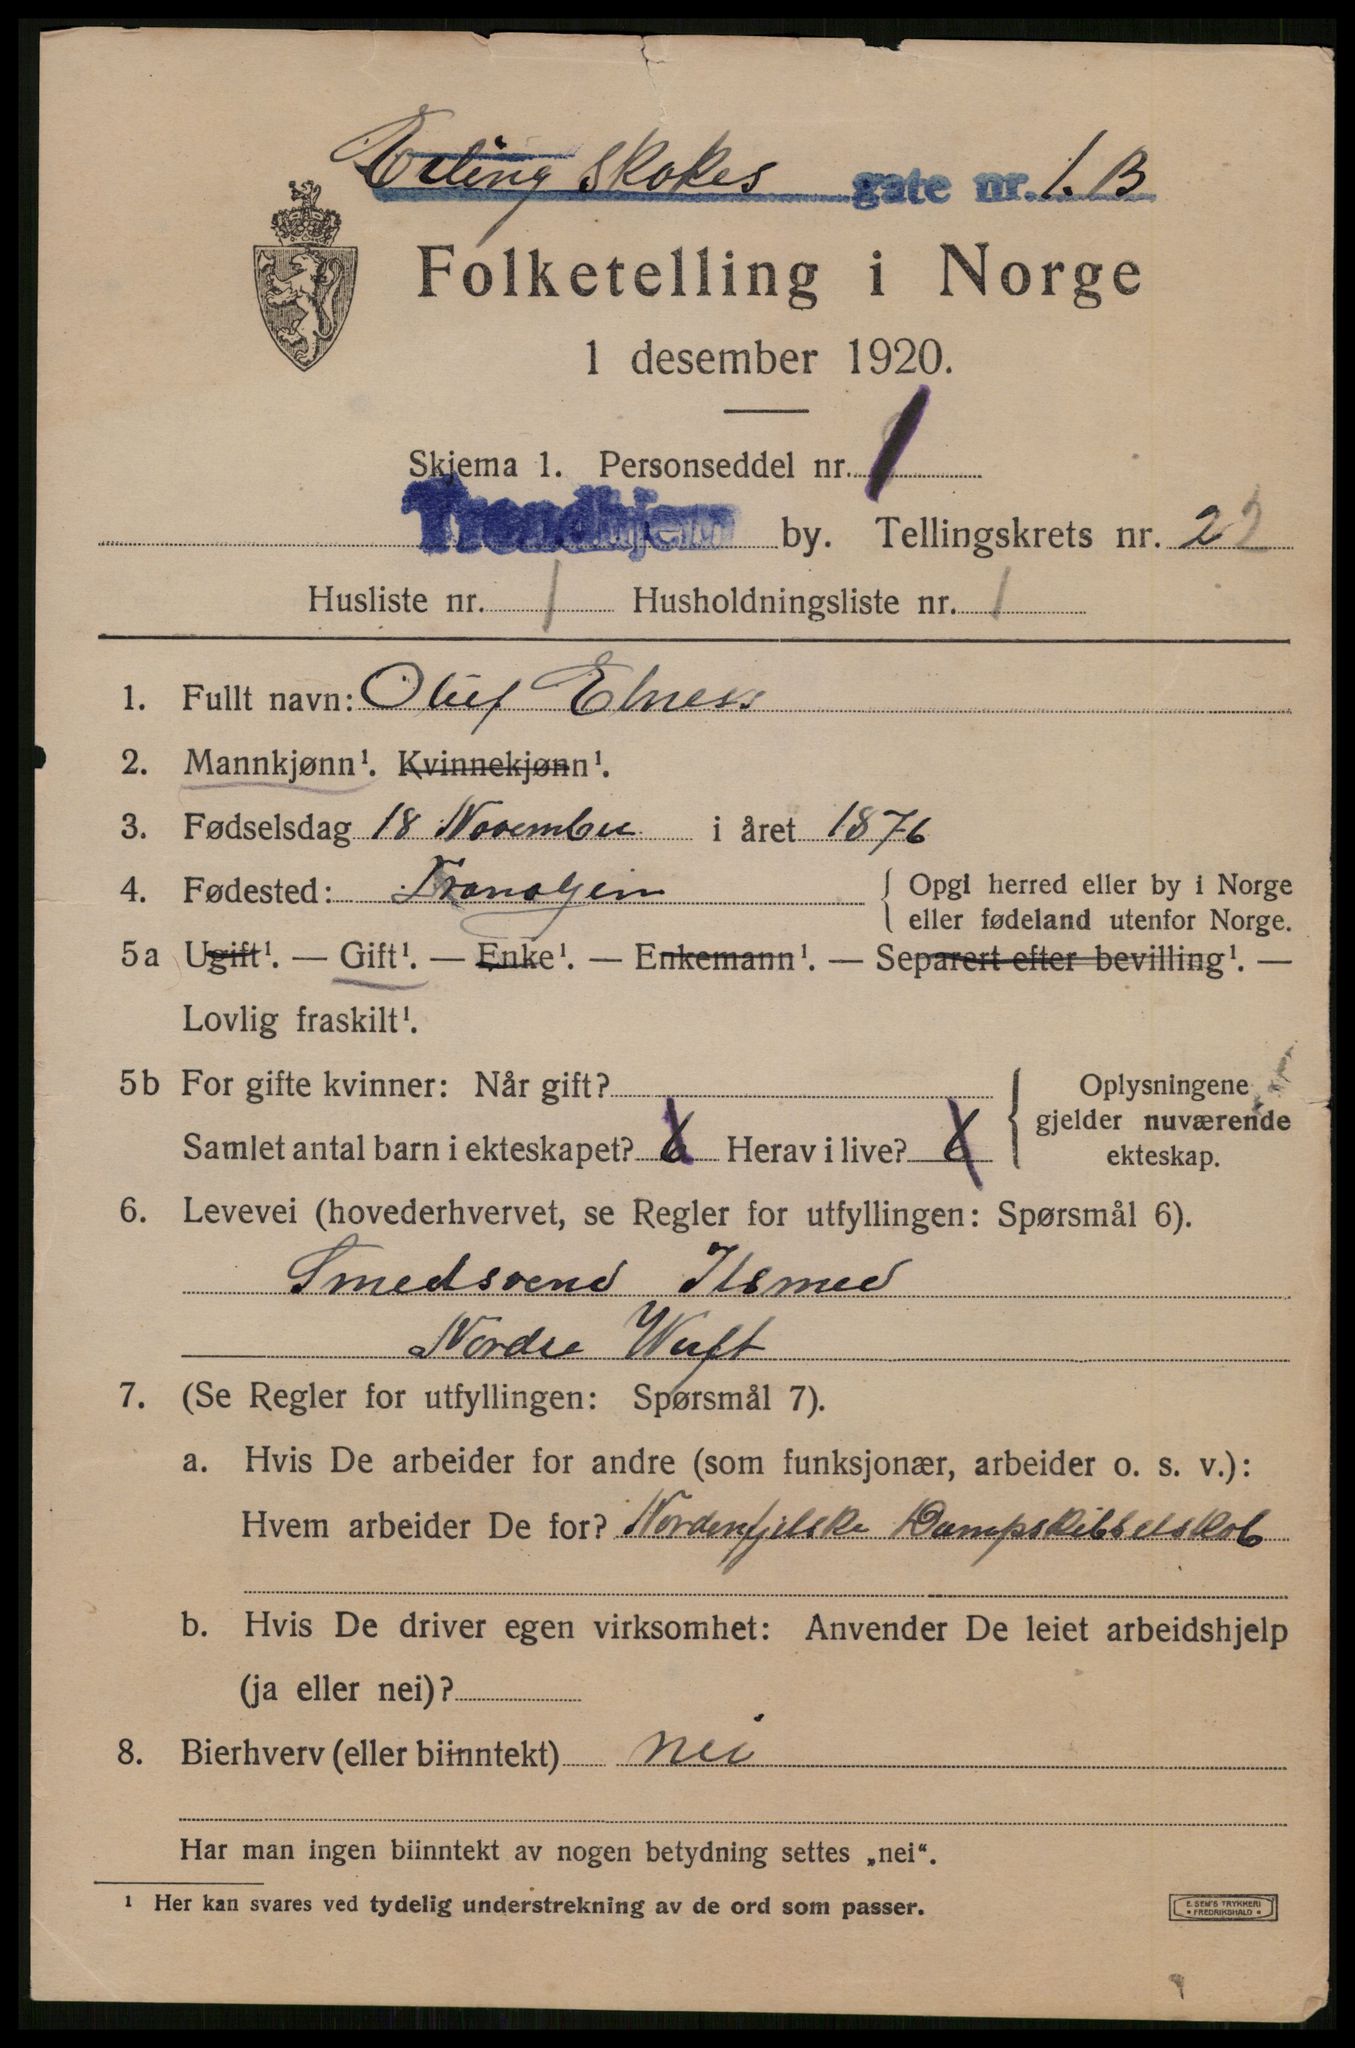 Erling Skakes gate nr. 1. B
Folketelling i Norge
1 desember 1920.
Skjema 1. Personseddel nr. 1
Trondhjem by. Tellingskrets nr. 22
Husliste nr. 1 Husholdningsliste nr. 1
1. Fullt navn: Oluf Elness
2. Mannkjønn¹. Kvinnekjønn¹.
3. Fødselsdag 18 November i året 1876
4. Fødested: Tronhjem { Opgi herred eller by i Norge
eller fødeland utenfor Norge.
5a Ugift¹. — Gift¹. — Enke¹. — Enkemann¹. — Separert efter bevilling¹. —
Lovlig fraskilt¹.
5b For gifte kvinner: Når gift? { Oplysningene
gjelder nuværende
Samlet antal barn i ekteskapet? 6 Herav i live? 6
ekteskap.
6. Levevei (hovederhvervet, se Regler for utfyllingen: Spørsmål 6).
Smedsvend
Nordre
7. (Se Regler for utfyllingen: Spørsmål 7).
a. Hvis De arbeider for andre (som funksjonær, arbeider o. s. v.):
Hvem arbeider De for? Nordenfjelske Dampskibselskab
b. Hvis De driver egen virksomhet: Anvender De leiet arbeidshjelp
(ja eller nei)?
8. Bierhverv (eller biinntekt) nei
Har man ingen biinntekt av nogen betydning settes „nei“.
¹ Her kan svares ved tydelig understrekning av de ord som passer.
E. SEM'S TRYKKERI
FREDRIKSHALD